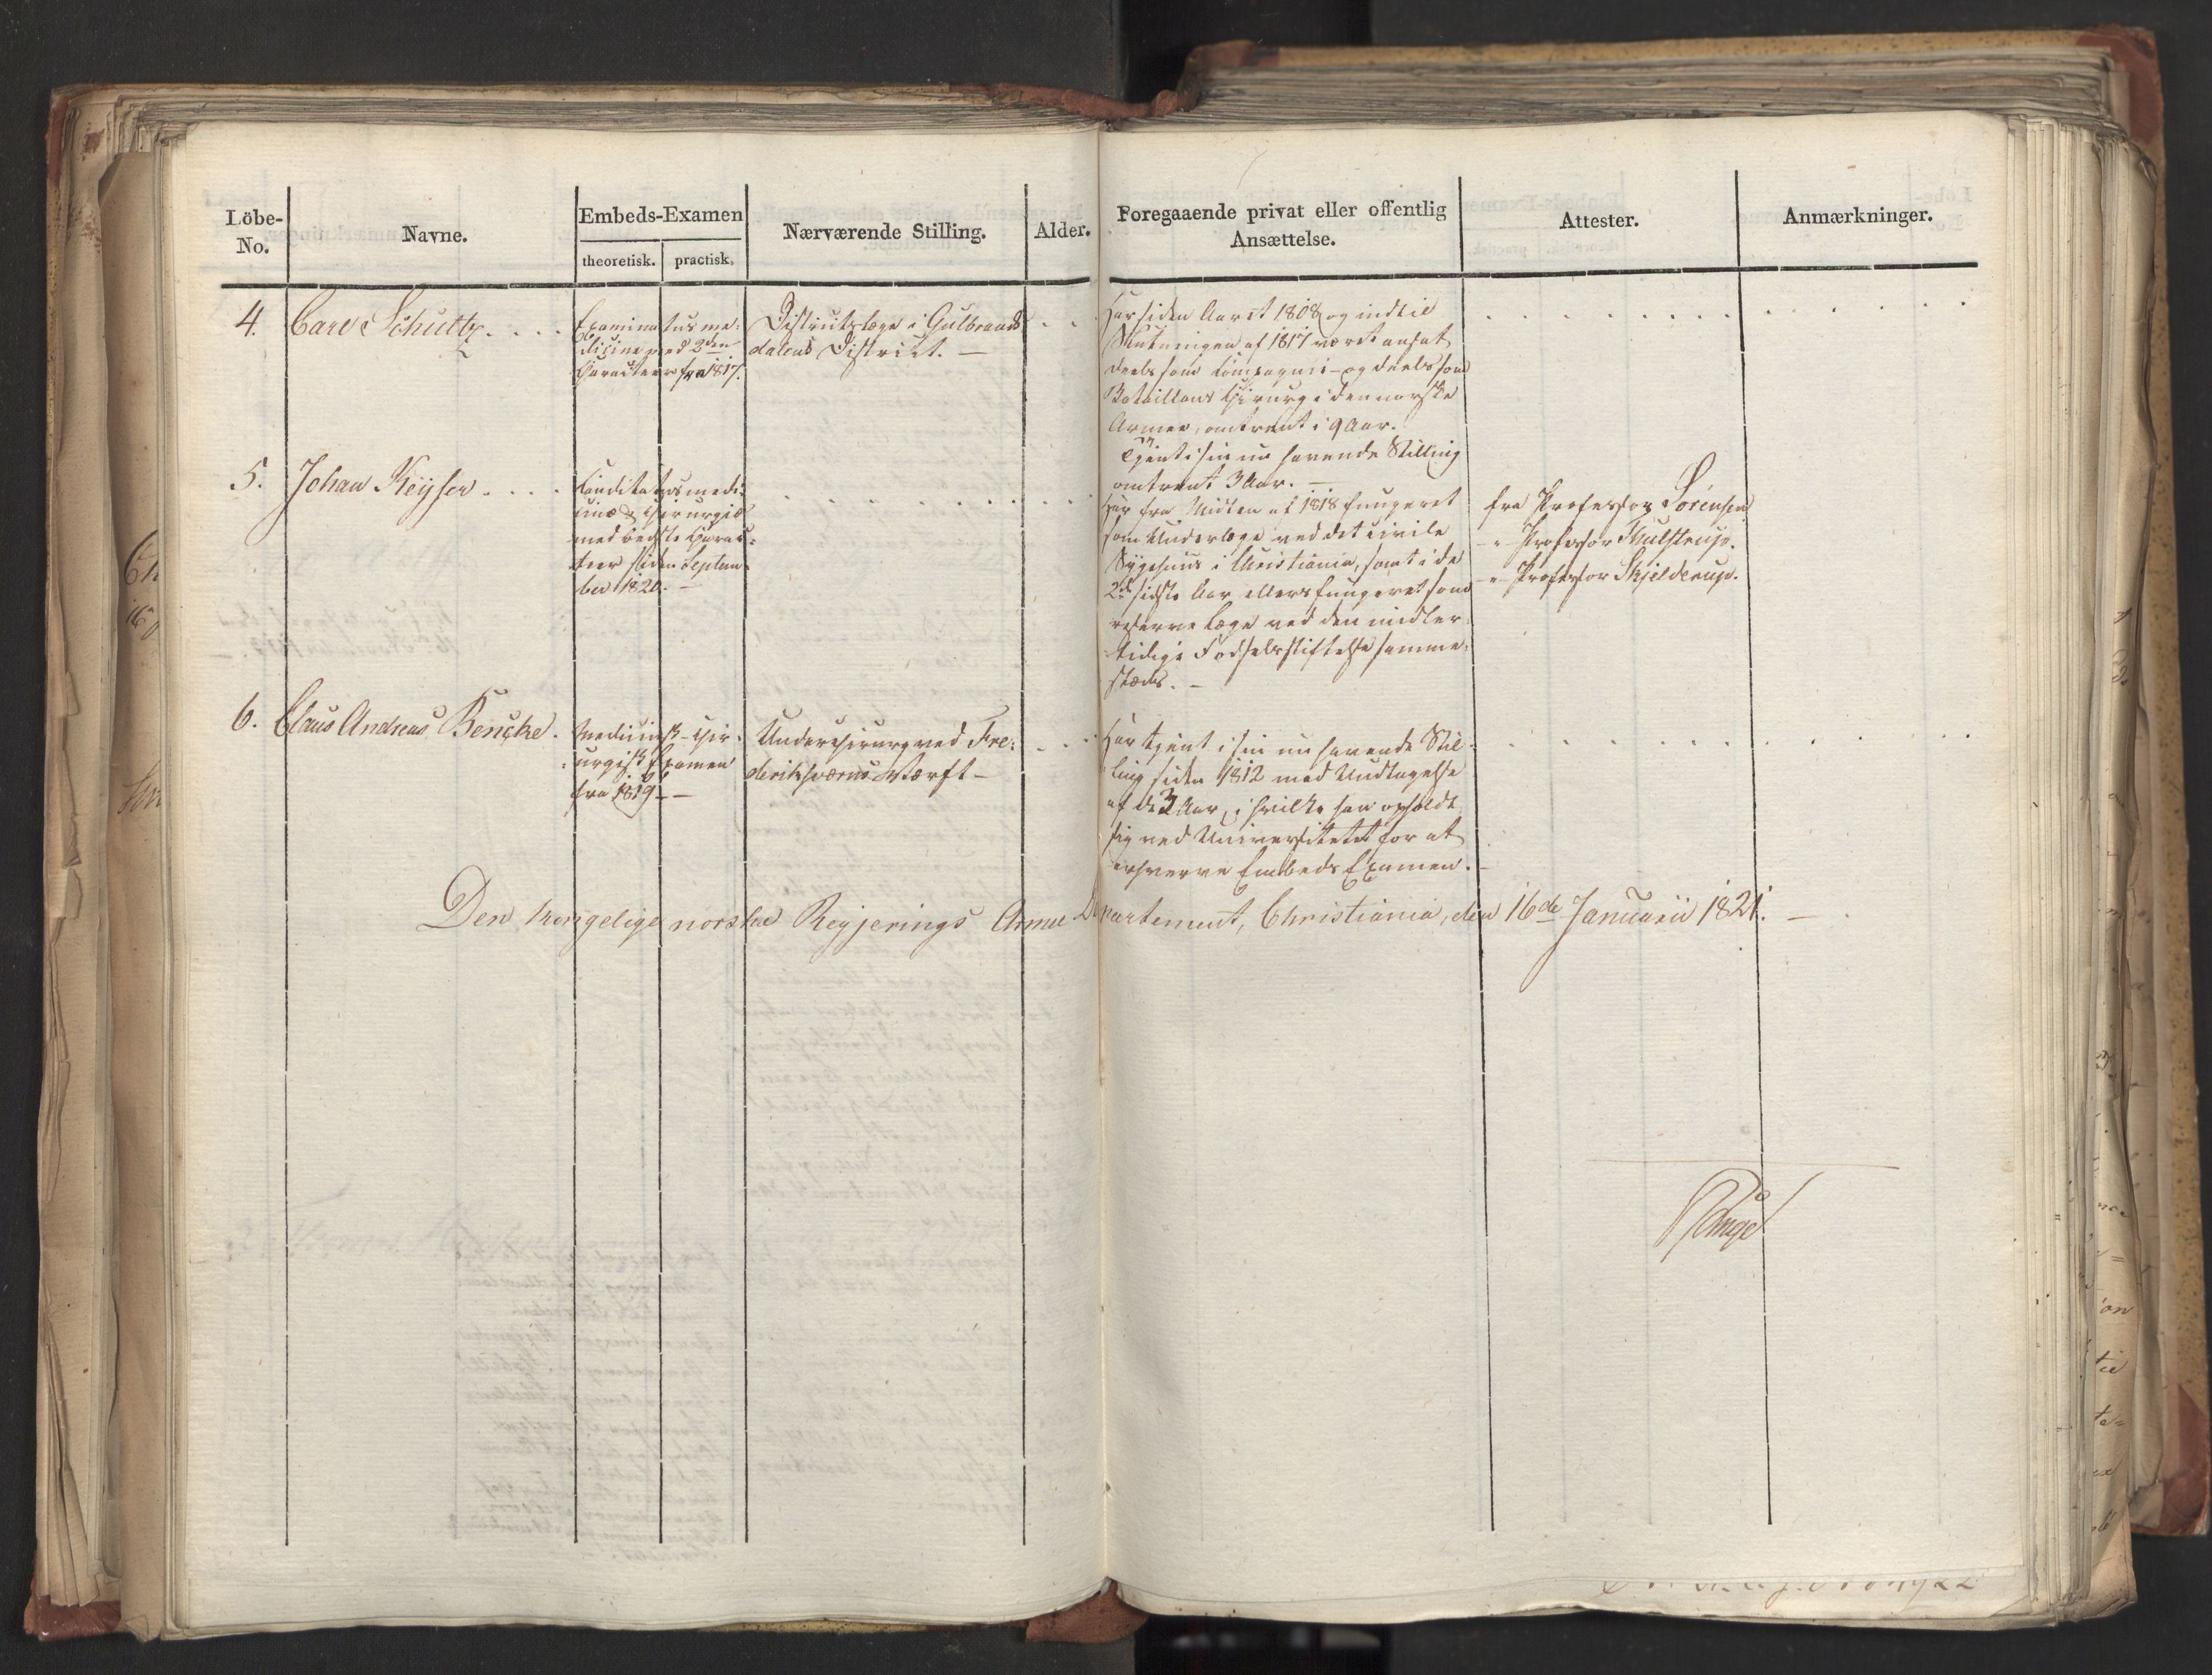 Löbe-
No.
Navne.
Embeds-Examen
theoretisk. practisk.
Nærværende Stilling.
Alder.
Foregaaende privat eller offentlig
Ansættelse.
Attester.
Anmærkninger.
4. Carl Schultz
Examinatus me-
dicine med 2den
Character fra 1817.
Districtslæge i Gulbrands
dalens District. —
Har siden Aaret 1808 og indtil
Slutningen af 1817 været ansat
deels som Compagnie- og deels som
Bataillons Chirurg i den norske
Armee, omtrent i 9 Aar.
Tjent i sin nu havende Stilling
omtrent 3 Aar. —
5. Johan Keyser
Canditatus medi-
cinæ & Chirurgiæ
med bedste Charac-
teer siden Septem-
ber 1820. —
Har fra Midten af 1818 fungeret
som Underlæge ved det civile
Sygehuus i Christiania, samt i de
2de sidste Aar ellers fungeret som
reserve Læge ved den midler-
tidige Fødselsstiftelse samme-
steds. —
fra Professor Sörensen
-"- Professor Thulstrup.
-"- Professor Skjelderup.
6. Claus Andreas Bencke.
Medicinsk-Chir-
urgisk Examen
fra 1819 —
Underchirurg ved Fre-
deriksværns Værft —
Har tjent i sin nu havende Stil-
ling siden 1812 med Undtagelse
af de 3 Aar, i hvilke han opholdt
sig ved Universitetet for at
erhverve Embeds Examen. —
Den kongelige norske Regjerings Armee Departement, Christiania, den 16de Januarii 1821. —